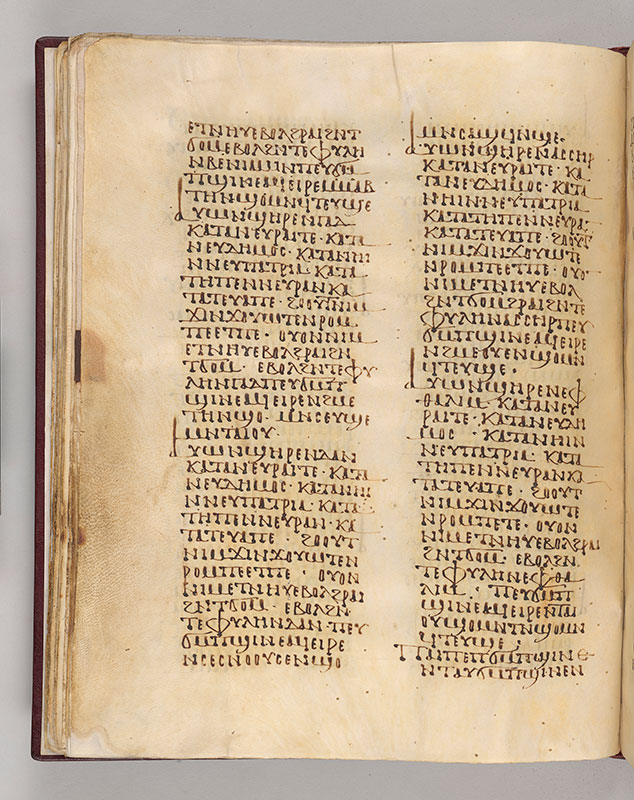 ⲉⲧⲛⲏⲩⲉⲃⲟⲗϩⲣⲁⲓϩⲛⲧ
ϭⲟⲙⲉⲃⲟⲗϩⲛⲧⲉⲫⲩⲗⲏ
ⲛⲃⲉⲛⲓⲁⲙⲓⲛⲡⲉⲩϭⲙ
ⲡϣⲓⲛⲉⲁϥⲉⲓⲣⲉⲙⲙⲁⲃ
ⲧⲏⲛϣⲟⲙⲛϥⲧⲉⲩϣⲉ
ⲁⲩⲱⲛϣⲏⲣⲉⲛⲅⲁⲇ
ⲕⲁⲧⲁⲛⲉⲩⲣⲁⲓⲧⲉ · ⲕⲁⲧⲁ
ⲛⲉⲩⲇⲏⲙⲟⲥ · ⲕⲁⲧⲁⲛⲏⲓ
ⲛⲛⲉⲩⲡⲁⲧⲣⲓⲁ · ⲕⲁⲧⲁ
ⲧⲏⲡⲉⲛⲛⲉⲩⲣⲁⲛⲕⲁ
ⲧⲁⲧⲉⲩⲁⲡⲉ · ϩⲟⲟⲩⲧⲛⲓⲙ
ϫⲓⲛϫⲟⲩⲱⲧⲉⲛⲣⲟⲙ
ⲡⲉⲉⲧⲡⲉ · ⲟⲩⲟⲛⲛⲓⲙ
ⲉⲧⲛⲏⲩⲉⲃⲟⲗϩⲣⲁⲓϩⲛ
ⲧϭⲟⲙ · ⲉⲃⲟⲗϩⲛⲧⲉⲫⲩ
ⲗⲏⲛⲅⲁⲇⲡⲉⲩϭⲙⲡ
ϣⲓⲛⲉⲁϥⲉⲓⲣⲉⲛϩⲙⲉ
ⲧⲏⲛϣⲟ · ⲙⲛⲥⲉⲩϣⲉ
ⲙⲛⲧⲁⲓⲟⲩ ·
ⲁⲩⲱⲛϣⲏⲣⲉⲛⲇⲁⲛ
ⲕⲁⲧⲁⲛⲉⲩⲣⲁⲓⲧⲉ · ⲕⲁⲧⲁ
ⲛⲉⲩⲇⲏⲙⲟⲥ · ⲕⲁⲧⲁⲛⲏⲓ
ⲛⲛⲉⲩⲡⲁⲧⲣⲓⲁ · ⲕⲁⲧⲁ
ⲧⲏⲡⲉⲛⲛⲉⲩⲣⲁⲛ · ⲕⲁ
ⲧⲁⲧⲉⲩⲁⲡⲉ · ϩⲟⲟⲩⲧ
ⲛⲓⲙϫⲓⲛϫⲟⲩⲱⲧⲉⲛ
ⲣⲟⲙⲡⲉⲉⲧⲡⲉ · ⲟⲩⲟⲛ
ⲛⲓⲙⲉⲧⲛⲏⲩⲉⲃⲟⲗϩⲣⲁⲓ
ϩⲛⲧϭⲟⲙ · ⲉⲃⲟⲗϩⲛ
ⲧⲉⲫⲩⲗⲏⲛⲇⲁⲛ · ⲡⲉⲩ
ϭⲙⲡϣⲓⲛⲉⲁϥⲉⲓⲣⲉ
ⲛⲥⲉⲥⲛⲟⲟⲩⲥⲉⲛϣⲟ
ⲙⲛⲥⲁϣϥⲛϣⲉ ·
ⲁⲩⲱⲛϣⲏⲣⲉⲛⲁⲥⲏⲣ
ⲕⲁⲧⲁⲛⲉⲩⲣⲁⲓⲧⲉ · ⲕⲁ
ⲧⲁⲛⲉⲩⲇⲏⲙⲟⲥ · ⲕⲁⲧⲁ
ⲛⲏⲓⲛⲛⲉⲩⲡⲁⲧⲣⲓⲁ
ⲕⲁⲧⲁⲧⲏⲡⲉⲛⲛⲉⲩⲣⲁ
ⲕⲁⲧⲁⲧⲉⲩⲁⲡⲉ · ϩⲟⲟⲩⲧ
ⲛⲓⲙϫⲓⲛϫⲟⲩⲱⲧⲉ
ⲛⲣⲟⲙⲡⲉⲉⲧⲡⲉ · ⲟⲩⲟ
ⲛⲛⲓⲙⲉⲧⲛⲏⲩⲉⲃⲟⲗ
ϩⲛⲧϭⲟⲙϩⲣⲁⲓϩⲛⲧⲉ
ⲫⲩⲗⲏⲛⲁⲥⲏⲣⲡⲉⲩ
ϭⲙⲡϣⲓⲛⲉⲁϥⲉⲓⲣⲉ
ⲛϩⲙⲉⲟⲩⲉⲛϣⲟⲙⲛ
ϯⲧⲉⲩϣⲉ ·
ⲁⲩⲱⲛϣⲏⲣⲉⲛⲉⲫ
ⲑⲁⲗⲓⲙ · ⲕⲁⲧⲁⲛⲉⲩ
ⲣⲁⲓⲧⲉ · ⲕⲁⲧⲁⲛⲉⲩⲇⲏ
ⲙⲟⲥ · ⲕⲁⲧⲁⲛⲏⲓⲛ
ⲛⲉⲩⲡⲁⲧⲣⲓⲁ · ⲕⲁⲧⲁ
ⲧⲏⲡⲉⲛⲛⲉⲩⲣⲁⲛⲕⲁ
ⲧⲁⲧⲉⲩⲁⲡⲉ · ϩⲟⲟⲩⲧ
ⲛⲓⲙϫⲓⲛϫⲟⲩⲱⲧⲉ
ⲛⲣⲟⲙⲡⲉⲧⲉ · ⲟⲩⲟⲛ
ⲛⲓⲙⲉⲧⲛⲏⲩⲉⲃⲟⲗϩⲣⲁⲓ
ϩⲛⲧϭⲟⲙ · ⲉⲃⲟⲗϩⲛ
ⲧⲉⲫⲩⲗⲏⲛⲉⲫⲑⲁ
ⲗⲓⲙ · ⲡⲉⲩϭⲙⲡ
ϣⲓⲛⲉⲁϥⲉⲓⲣⲉⲛⲧⲁⲓ
ⲟⲩϣⲟⲙⲛⲧⲛϣⲟⲙⲛ
ϥⲧⲉⲩϣⲉ ·
ⲡⲁⲓⲡⲉⲡϭⲙⲡϣⲓⲛⲉ
ⲛⲧⲁⲩϭⲙⲡϣⲓⲛⲉⲛ